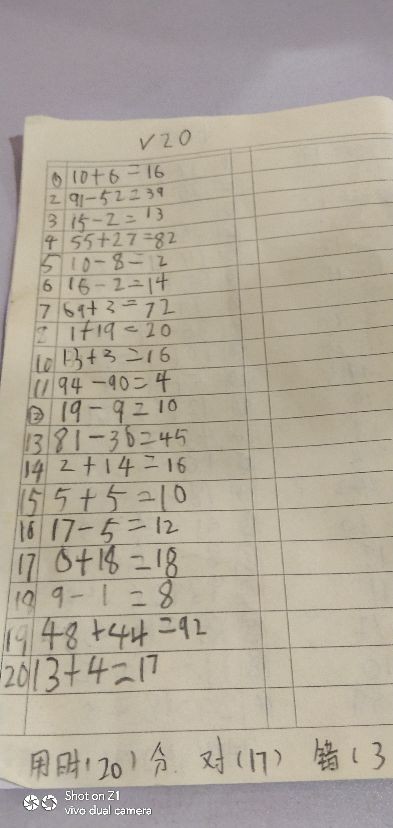 V20
① 10+6=16
2 91-52=39
3 15-2=13
4 55+27=82
5 10-8=2
6 16-2=14
7 69+3=72
1+19=20
10 13+3=16
11 94-90=4
⑫ 19-9=10
13 81-36=45
14 2+14=16
15 5+5=10
16 17-5=12
17 0+18=18
18 9-1=8
19 48+44=92
20 13+4=17
用时(20)分 对(17) 错(3
Shot on Z1
vivo dual camera